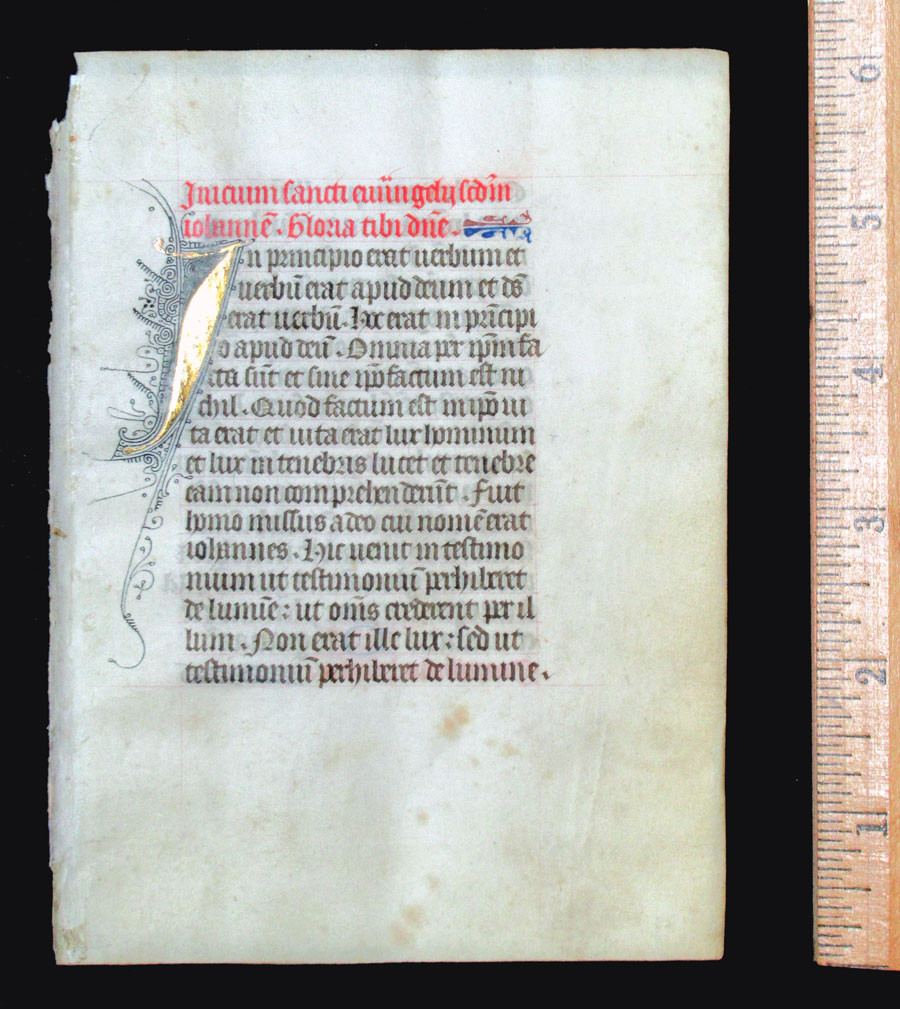 Inicium sancti euuangelij scd'm
iohannē . Gloria tibi dn̄e .
In principio erat uerbum et
uerbū erat apud deum et dȩ̄s
erat uerbū . Hoc erat in prīncipi
o apud deū . Omnia per ip̄m fa
cta sūt et sine ip̄o factum est ni
chil . Quod factum est in ip̄o ui
ta erat et uita erat lux hominum
et lux in tenebris lucet et tenebre
eam non comprehenderūt . Fuit
homo missus a deo cui nomē erat
iohannes . Hic uenit in testimo
nium ut testimoniū perhiberet
de lumīe : ut om̄s crederent per il
lum . Non erat ille lux : sed ut
testimoniū perhiberet de lumine .
6
5
4
3
2
1